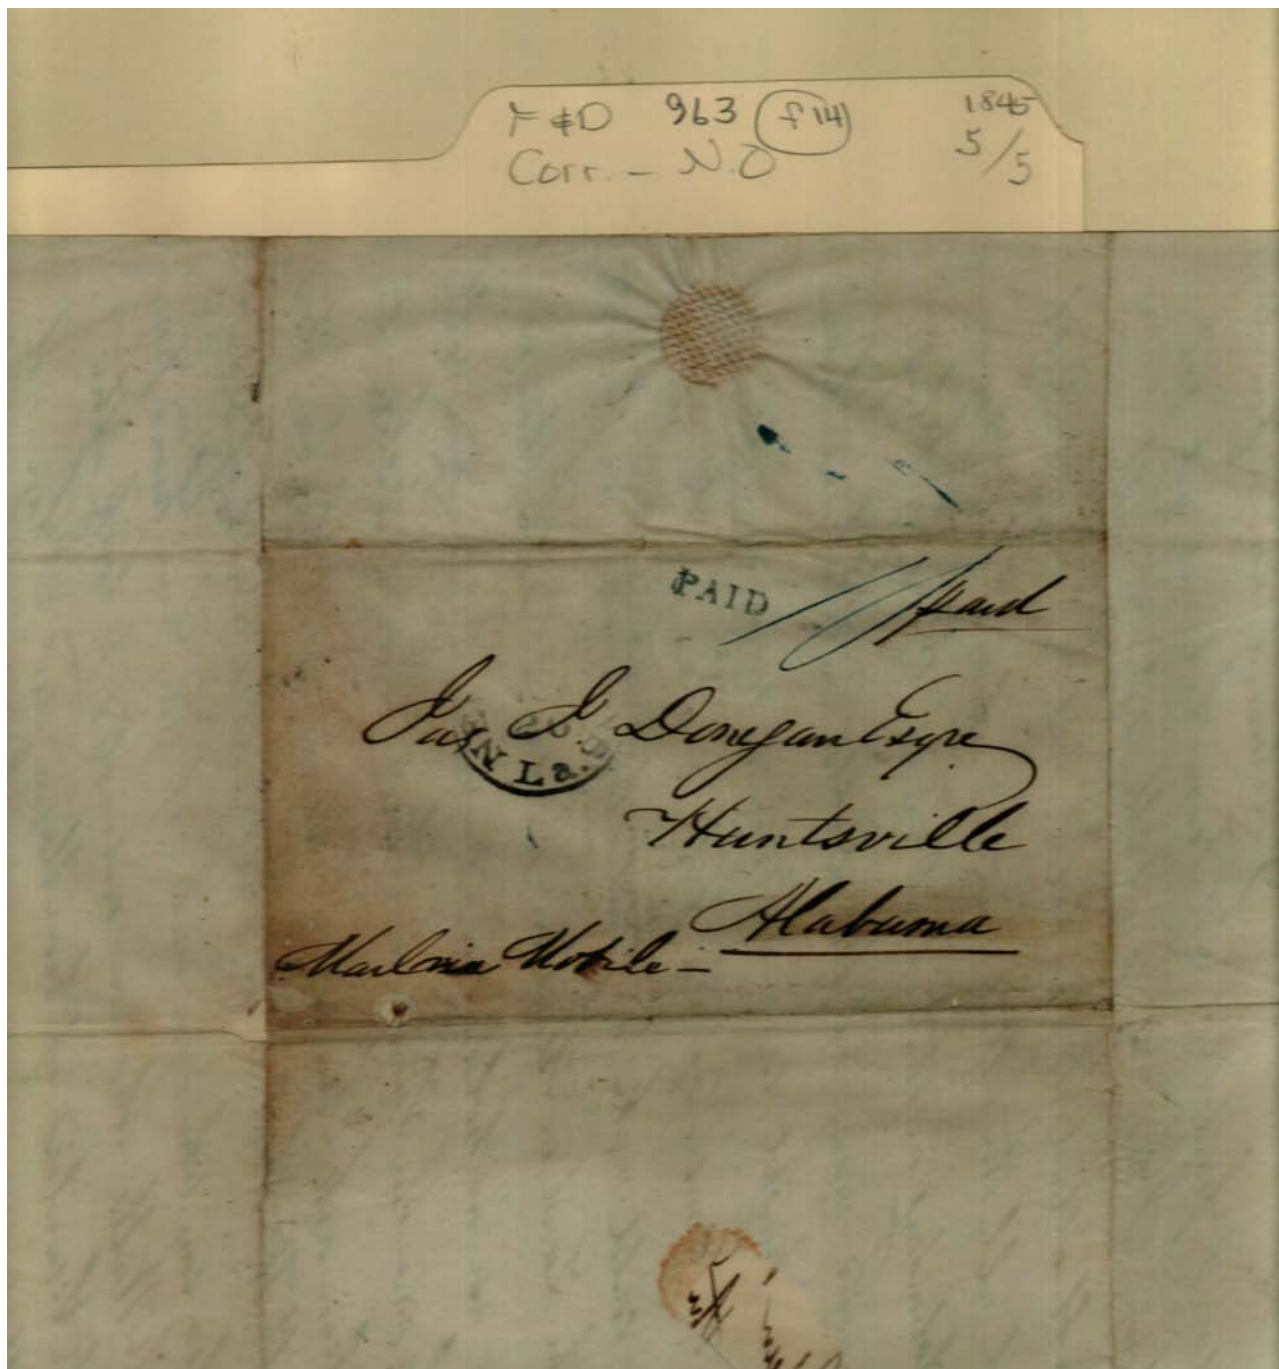 F & D 963 f 14 1845
Corr. - N.O 5/5
PAID paid
Jas J Donegan Esqre
N La.
Huntsville
Alabama
Mobile -